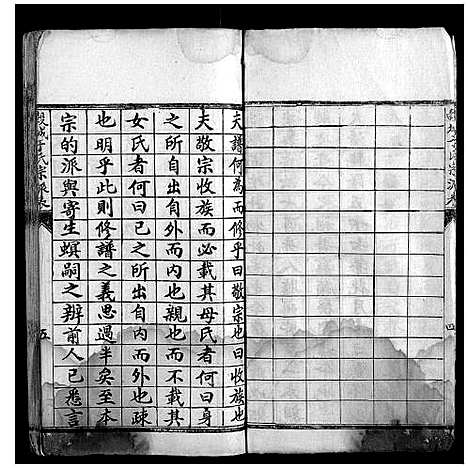 夫譜何為而修乎曰敬宗也曰收族也
夫敬宗收族而必載其母氏者何曰身
之所自出自外而內也親也而不載其
女氏者何曰己之所出自內而外也疎
也明乎此則修譜之義思過半矣至本
宗的派與寄生螟嗣之辨前人已悉言
氏宗派
五
氏宗派
四